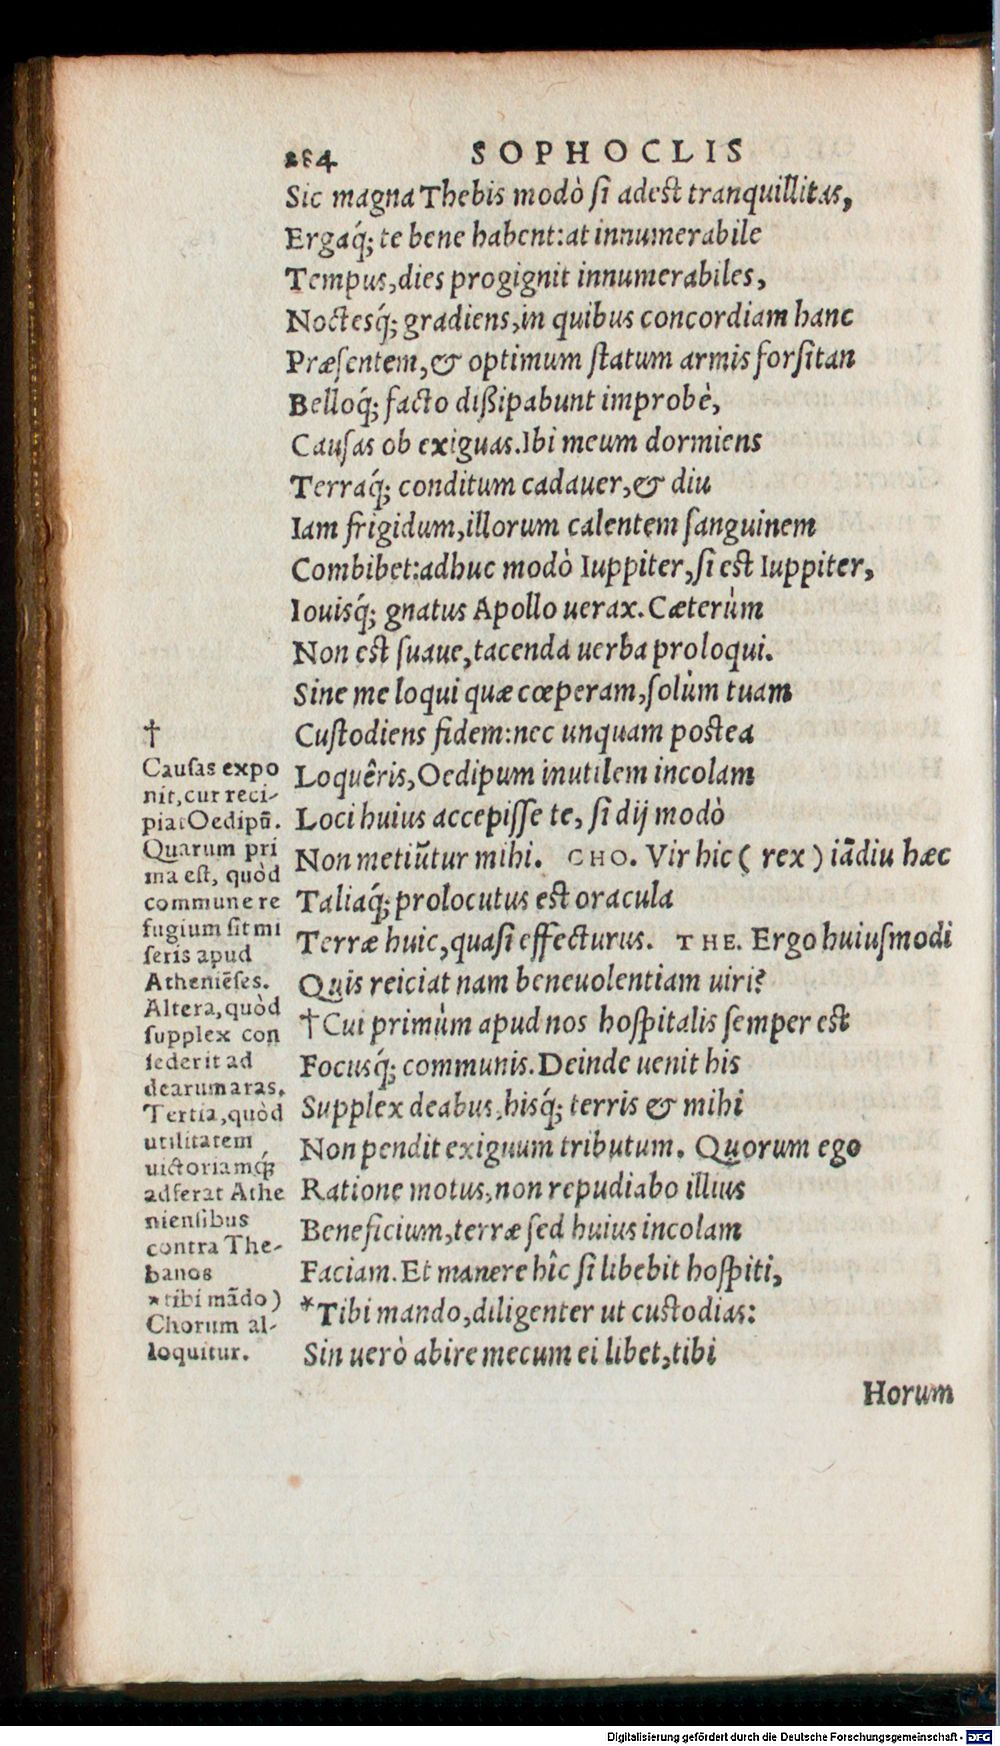 284 SOPHOCLIS
Sic magna Thebis modò ſi adest tranquillitas,
Ergaq́; te bene habent: at innumerabile
Tempus, dies progignit innumerabiles,
Noctesq́; gradiens, in quibus concordiam hanc
Præſentem, & optimum ſtatum armis forſitan
Belloq́; facto dißipabunt improbè,
Cauſas ob exiguas. Ibi meum dormiens
Terraq́; conditum cadauer, & diu
Iam frigidum, illorum calentem ſanguinem
Combibet: adhuc modò Iuppiter, ſi est Iuppiter,
Iouisq́; gnatus Apollo uerax. Cæterùm
Non est ſuaue, tacenda uerba proloqui.
Sine me loqui quæ cœperam, ſolùm tuam
Cuſtodiens fidem: nec unquam postea
Loquêris, Oedipum inutilem incolam
Loci huius accepiſſe te, ſi dij modò
Non metiūtur mihi. CHO. Vir hic ( rex ) iādiu hæc
Taliaq́; prolocutus est oracula
Terræ huic, quaſi effecturus. THE. Ergo huiuſmodi
Quis reiciat nam beneuolentiam uiri?
†Cui primùm apud nos hoſpitalis ſemper est
Focusq́; communis. Deinde uenit his
Supplex deabus, hisq́; terris & mihi
Non pendit exiguum tributum. Quorum ego
Ratione motus, non repudiabo illius
Beneficium, terræ ſed huius incolam
Faciam. Et manere hîc ſi libebit hoſpiti,
*Tibi mando, diligenter ut custodias:
Sin uerò abire mecum ei libet, tibi
Horum
†
Cauſas expo
nit, cur reci-
piat Oedipū.
Quarum pri
ma eſt, quòd
commune re
fugium ſit mi
ſeris apud
Atheniēſes.
Altera, quòd
ſupplex con
ſederit ad
dearum aras.
Tertia, quòd
utilitatem
uictoriamq́;
adferat Athe
nienſibus
contra The-
banos
*tibi mādo)
Chorum al-
loquitur.
Digitalisierung gefördert durch die Deutsche Forschungsgemeinschaft - DFG